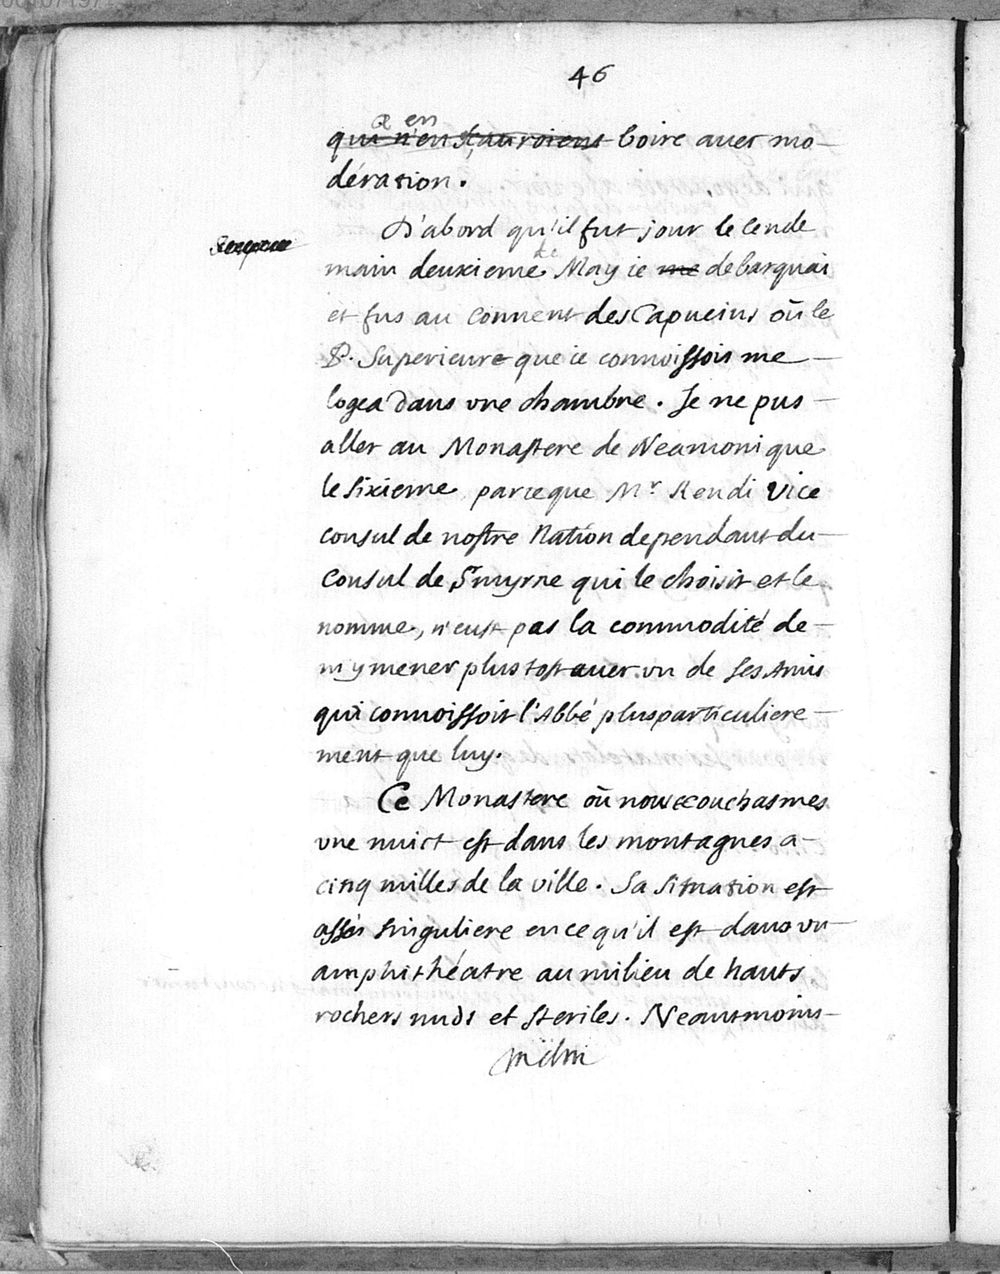 46
& en
qui n'en sçauroient boire auec mo-
dération.
D'abord qu'il fut jour le lende
main deuxieme de May ie me debarquai
et fus au Conuent des Capucins où le
P. Superieure que ie connoissois me
logea dans vne chambre. Je ne pus
aller au Monastere de Neamoni que
le sixieme parceque Mr Rendi Vice
consul de nostre Nation dependant du
Consul de Smyrne qui le choisit et le
nomme, n'eust pas la commodité de
m'y mener plustost auec vn de ses Amis
qui connoissoit l'Abbé plus particuliere-
ment que luy.
Ce Monastere où nous couchasmes
vne nuict est dans les montagnes a
cinq milles de la ville. Sa situation est
assés singuliere en ce qu'il est dans vn
amphithéatre au milieu de hauts
rochers nuds et steriles. Neantmoins